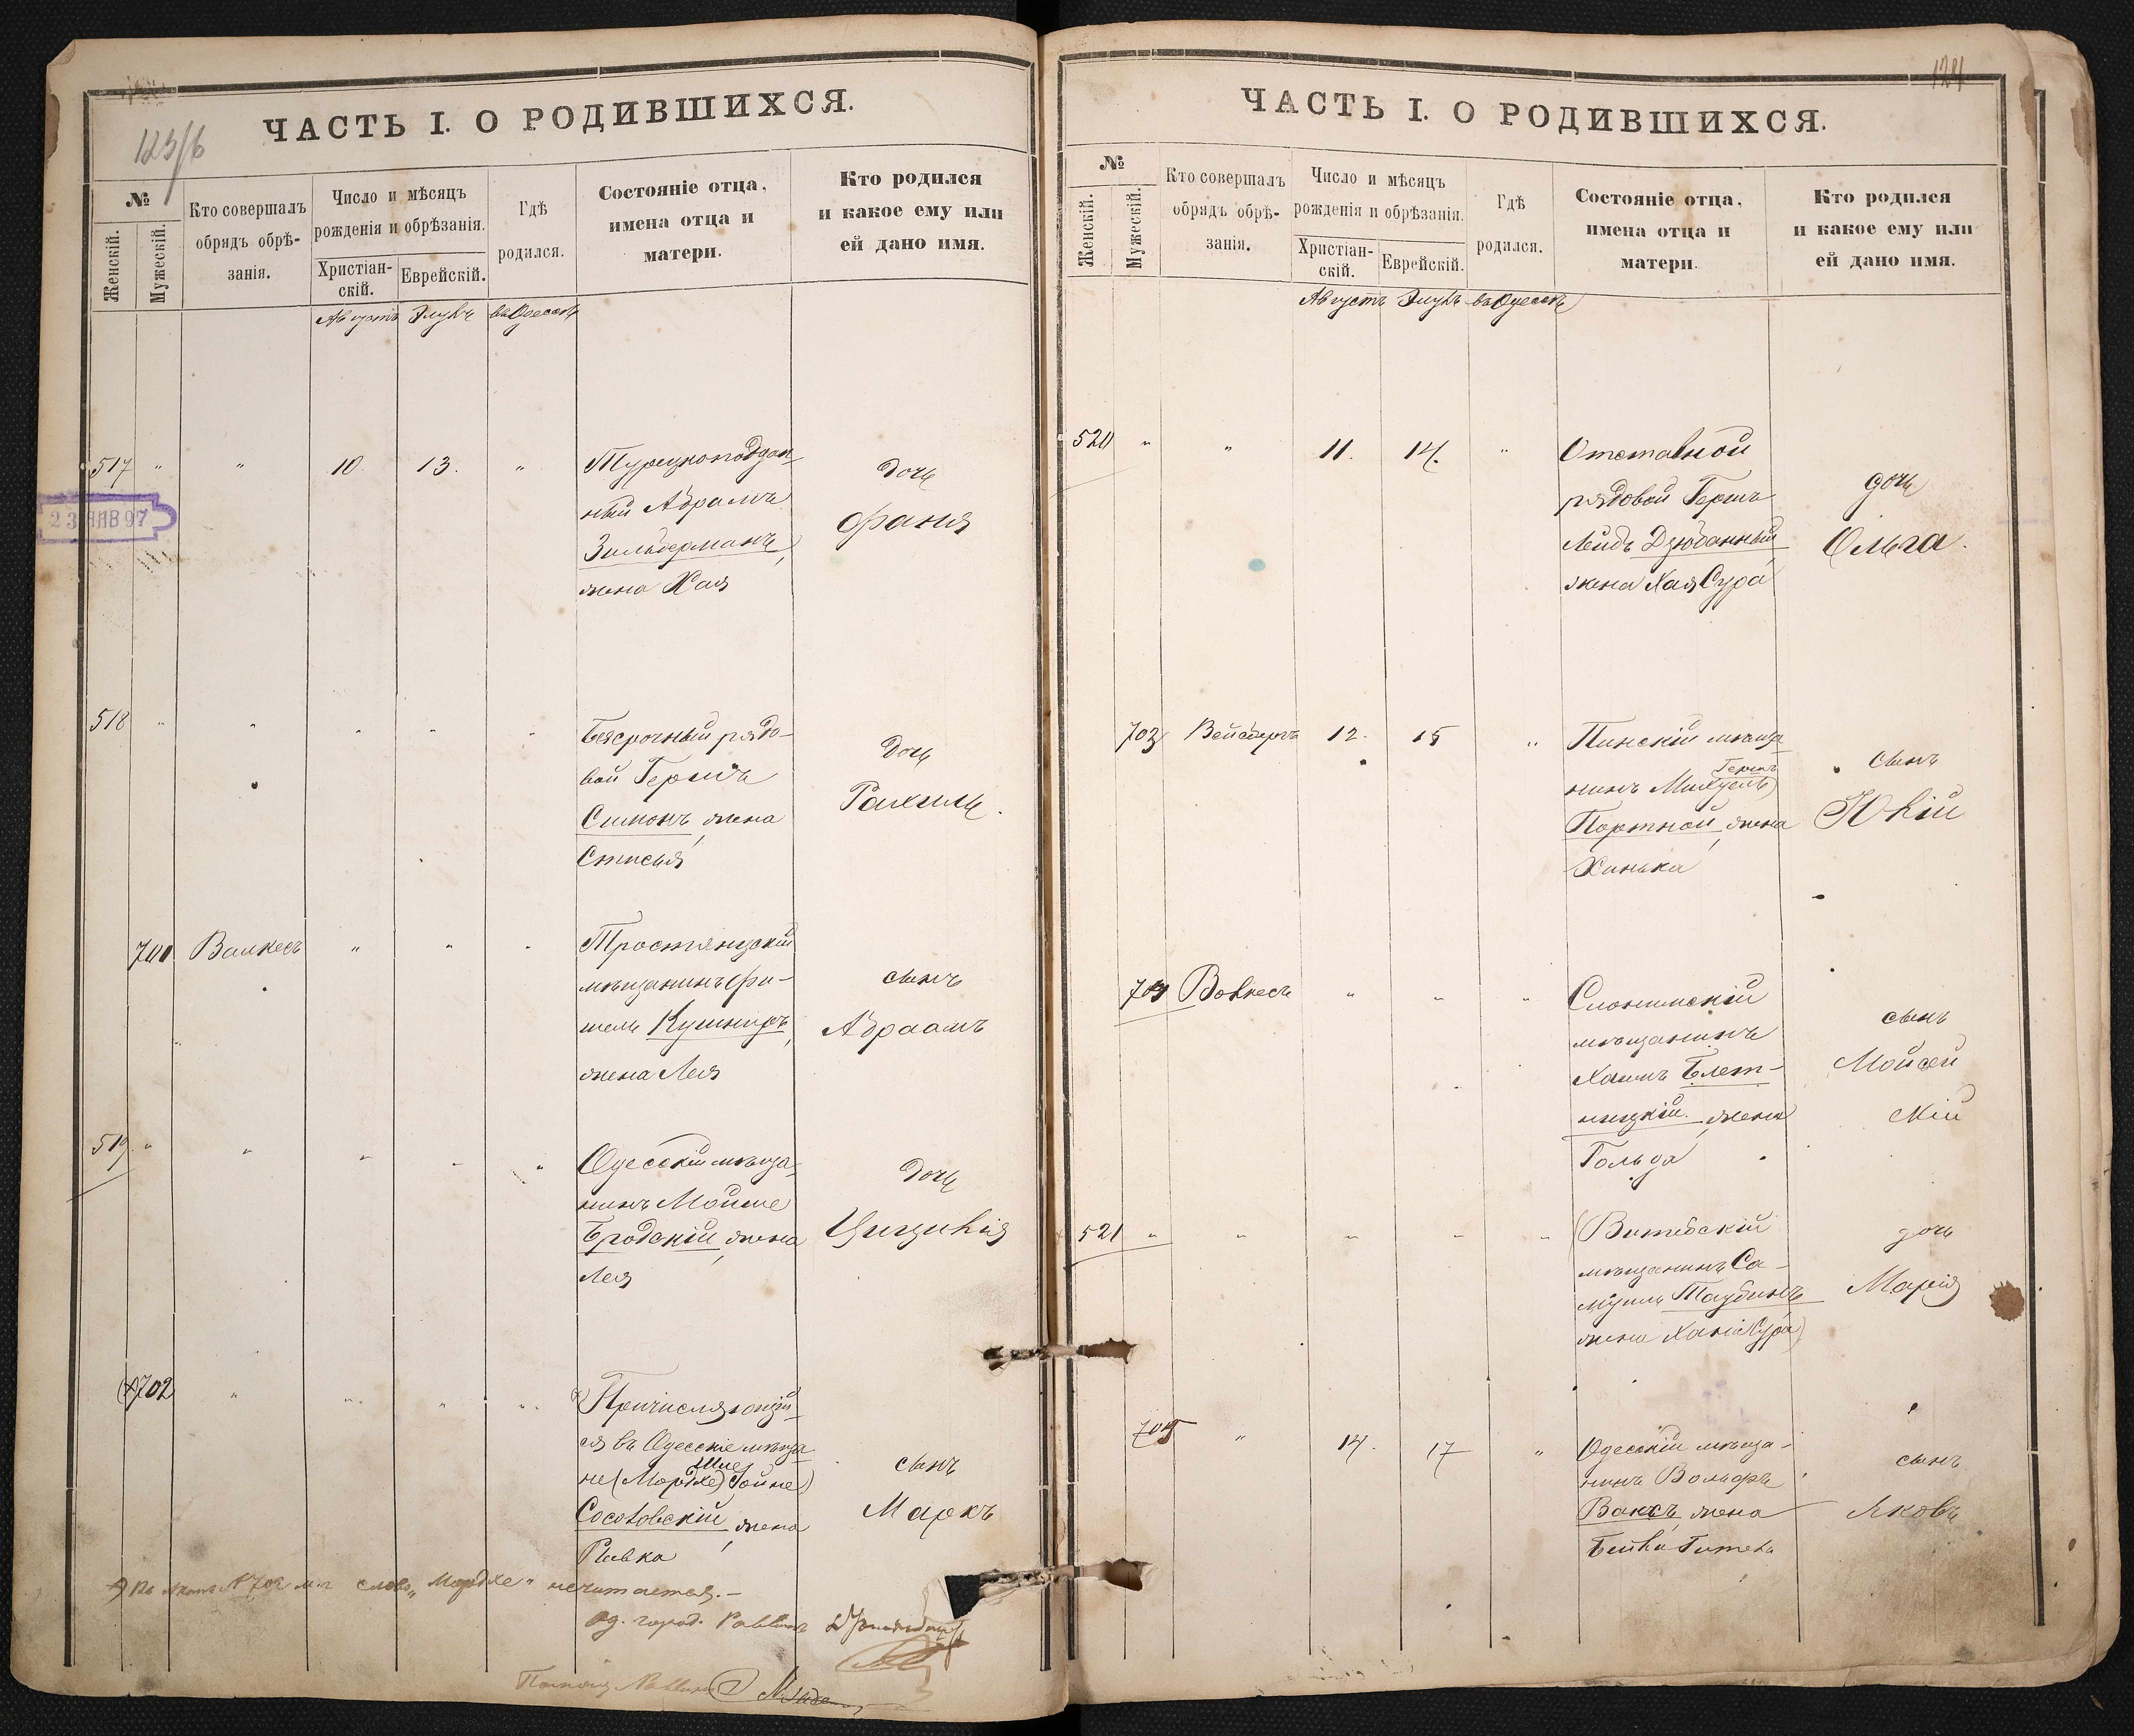 123/6
ЧАСТЬ I. О РОДИВШИХСЯ.
№
Женскій.
Мужескій.
Кто совершалъ обрядъ обрѣ-
занія.
Число и мѣсяцъ
рожденія и обрѣзанія.
Христіан-
скій.
Еврейскій.
Гдѣ
родился.
Состояніе отца,
имена отца и
матери.
Кто родился
и какое ему или
ей дано имя.
Августъ Элулъ въ Одессѣ
517 " " 10. 13. "
Турецкоподдан-
ный Абрамъ
Зильберманъ,
жена Хая
Дочь
Фаня
23 ЯНВ 97
518 " " " " "
Безсрочный рядо-
вой Гершъ
Симонъ, жена
Дочь
Рахиль.
701 " " "
Тростянецкій
мѣщанинъ Фи-
шель Кушниръ,
жена Лея
сынъ
Абраамъ
519. " " " " "
Одесскій мѣща-
нинъ Мойше
Бродскій, жена
Лея
Дочь
Цицилія
702 " " " "
Причисляющій-
ся въ Одесскіе мѣща
не (Мордхе)
жена
Ривка
сынъ
Маркъ
№ 702 слово "Мордхе" не читается. –
Од. город. Раввинъ
124
ЧАСТЬ I. О РОДИВШИХСЯ.
№
Женскій.
Мужескій.
Кто совершалъ
обрядъ обрѣ-
занія.
Число и мѣсяцъ
рожденія и обрѣзанія.
Христіан-
скій.
Еврейскій.
Гдѣ
родился.
Состояніе отца,
имена отца и
матери.
Кто родился
и какое ему или
ей дано имя.
Августъ Элулъ въ Одессѣ
520 " " 11. 14. "
Отставной
рядовой Гершъ
Лейдъ Дзюбанный
жена Хая Сура
дочь
Ольга.
703 Вейсбергъ 12. 15 "
Пинскій мѣща
нинъ
Гершъ
Портной, жена
Хинька
сынъ
Юлій
704 Вовкесъ " " "
Слонимскій
мѣщанинъ
Хаимъ Блет-
ницкій, жена
Гольда
сынъ
Мойсей
521 " " " " "
Витебскій
мѣщанинъ Са-
муилъ Таубинъ
жена Хана Сура
дочь
Марія
705 " 14. 17 "
Одесскій мѣща-
нинъ Вольфъ
Ваксъ, жена
Бейла Гитель
сынъ
Яковъ